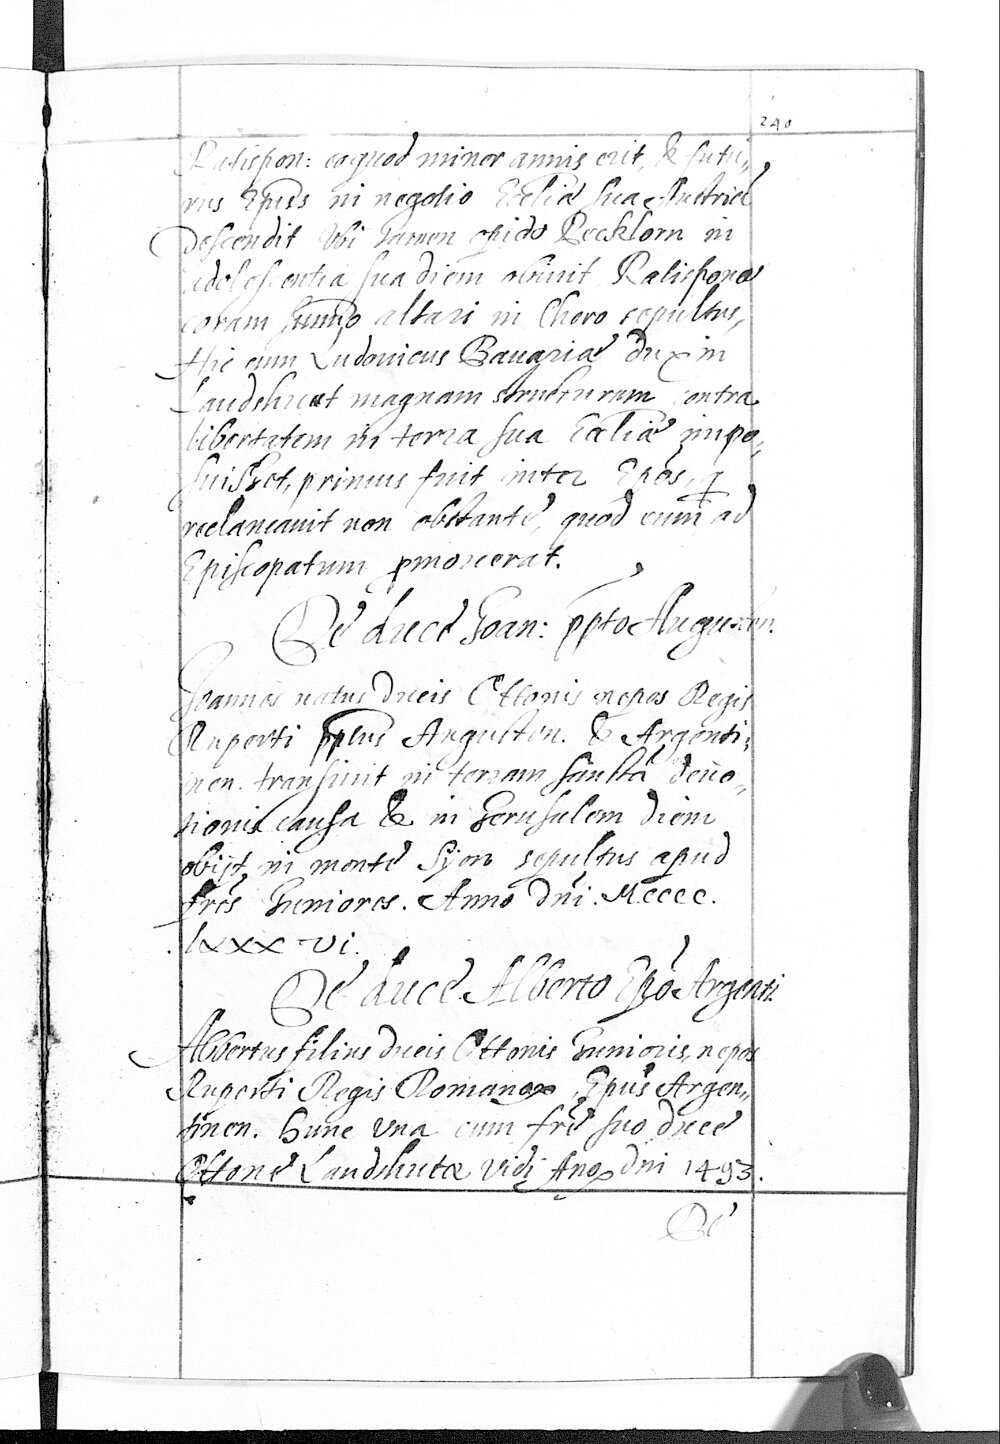 240
Ratispon: eo quod minor annis erit, & futu-
rus Epūs in negotio Ecliæ suæ Austriā
descendit Vbi tamen opido Pecklorn in
adolescentia sua diem obiuit Ratisponæ
coram sūmo altari in Choro sepultus,
Hic cum Ludouicus Bauariæ dux in
Landshuet magnam structuram contra
libertatem in terra sua Ecliæ impo-
suisset, primus fuit inter Epōs, q
reclamauit non obstante, quod eum ad
Episcopatum pmouerat.
De duce Joan: ppto Augusten.
Joannes natus ducis Ottonis nepos Regis
Ruperti pptus Augusten. & Argenti-
nen. transiuit in terram sanctā deuo-
tionis causa & in Jerusalem diem
obijt, in monte Syon sepultus apud
frēs Juniores. Anno Dn̄i. Mcccc.
lxxxvi.
De duce Alberto Epō Argenti.
Albertus filius ducis Ottonis Junioris, nepos
Ruperti Regis Romanoꝝ, Epūs Argen-
tinen. Hunc vna cum frē suo duce
Ottone Landshutæ vidi Anno dni 1493.
De